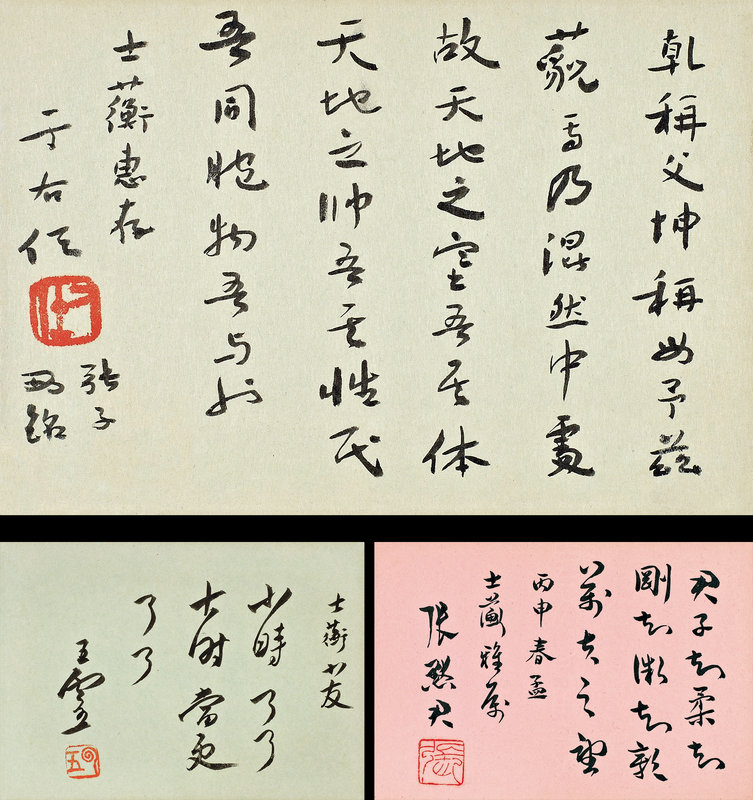 乾稱父坤稱母予茲
藐焉乃混然中處
故天地之塞吾其体
天地之帅吾其性民
吾同胞物吾与也
士蘅惠存
于右任
張子
西銘
士蘅小友
小時了了
大时當更
了了
王雲五
五
君子知柔知
剛知微知彰
萬夫之望
丙申春孟
士蘅雅属
張默君
張